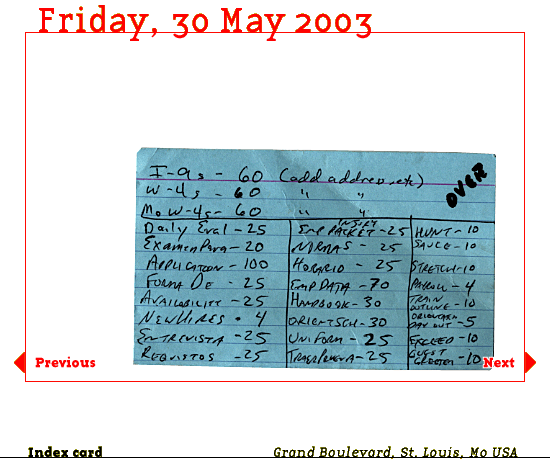 Friday, 30 May 2003
I-9s - 60 (add address, etc)
W-4s - 60 " "
Mo W-4s - 60 " "
OVER
Daily Eval - 25
Examen Para - 20
Application - 100
Forma De - 25
Availability - 25
New Hires - 4
Entrevista - 25
Requistos - 25
Emp Packet - 25
Normas - 25
Horario - 25
Emp Data - 70
Handbook - 30
Orient Sch - 30
Uniform - 25
- 25
Hunt - 10
Sauce - 10
Stretch - 10
Payroll - 4
Train
Outline - 10
Orientation
Day Out - 5
Exceed - 10
Guest
Greeter - 10
Previous
Next
Index card
Grand Boulevard, St. Louis, Mo USA